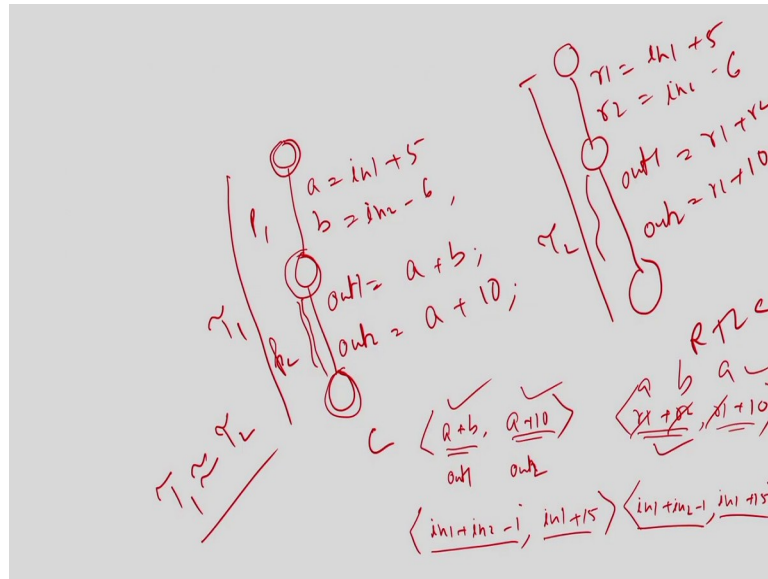 r1 = in1 + 5
r2 = in2 - 6
out1 = r1 + r2
out2 = r1 + 10
τ2
a = in1 + 5
b = in2 - 6,
p1
out1 = a + b;
out2 = a + 10;
p2
τ1
τ1 ≈ τ2
RTL
a b a
C <a+b, a+10>
<r1+r2, r1+10
out1 out2
<in1+in2-1, in1+15>
<in1+in2-1, in1+15